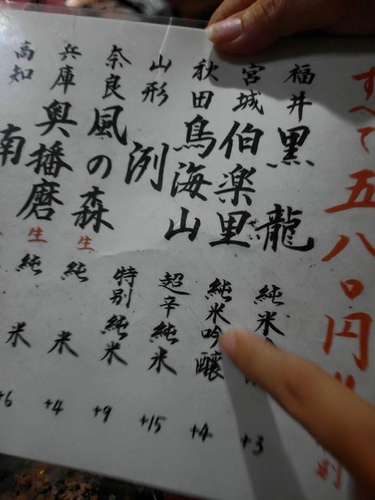 すべて五八〇円!!
福井 黒龍 純米 +3
宮城 伯楽星 純米吟醸 +4
秋田 鳥海山 超辛純米 +15
山形 洌 特別純米 +9
奈良 風の森 生 純米 +4
兵庫 奥播磨 生 純米 +6
高知 南